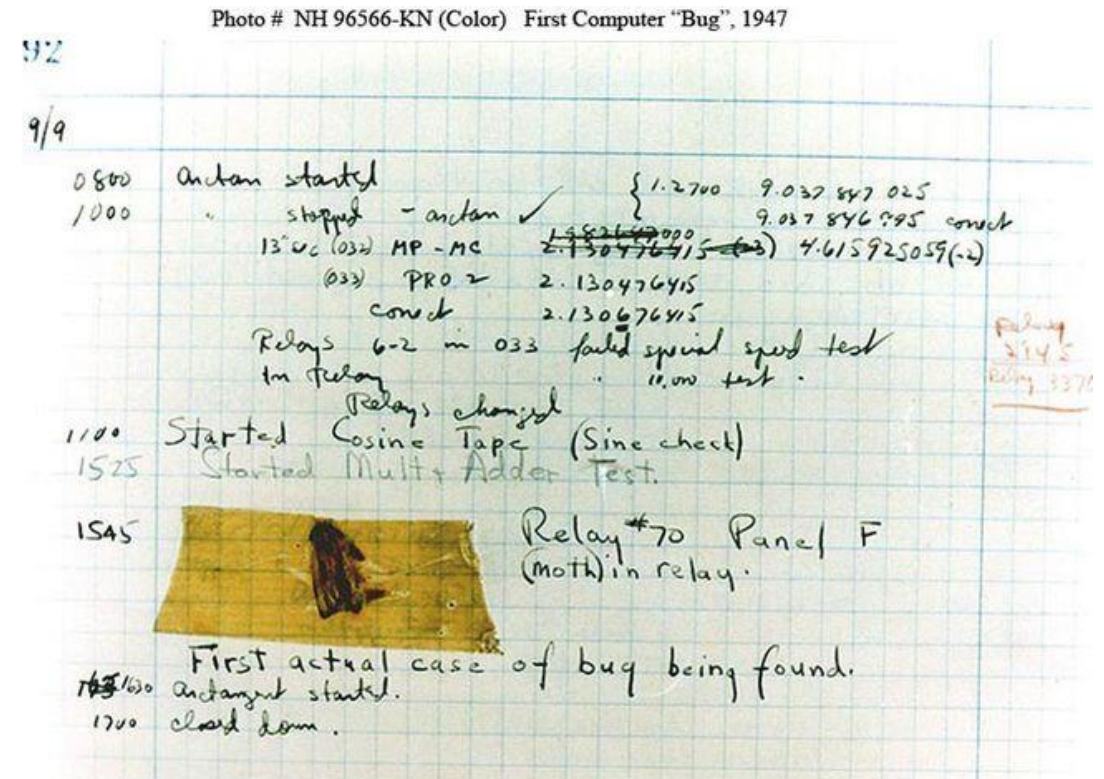 Photo # NH 96566-KN (Color) First Computer “Bug”, 1947
92
9/9
0800 antan started
1000 " stopped - antan ✓ { 1.2700 9.037 847 025
9.037 846 995 correct
13"uc (032) MP - MC 2.130476415 (-3) 4.615925059(-2)
(033) PRO 2 2.130476415
correct 2.130676415
Relays 6-2 in 033 failed special speed test
In Relay " 11,000 test.
Relays changed
1100 Started Cosine Tape (Sine check)
1525 Started Mult + Adder Test.
1545 Relay #70 Panel F
(moth) in relay.
First actual case of bug being found.
1630 antangent started.
1700 closed down.
Relay
2145
Relay 3370